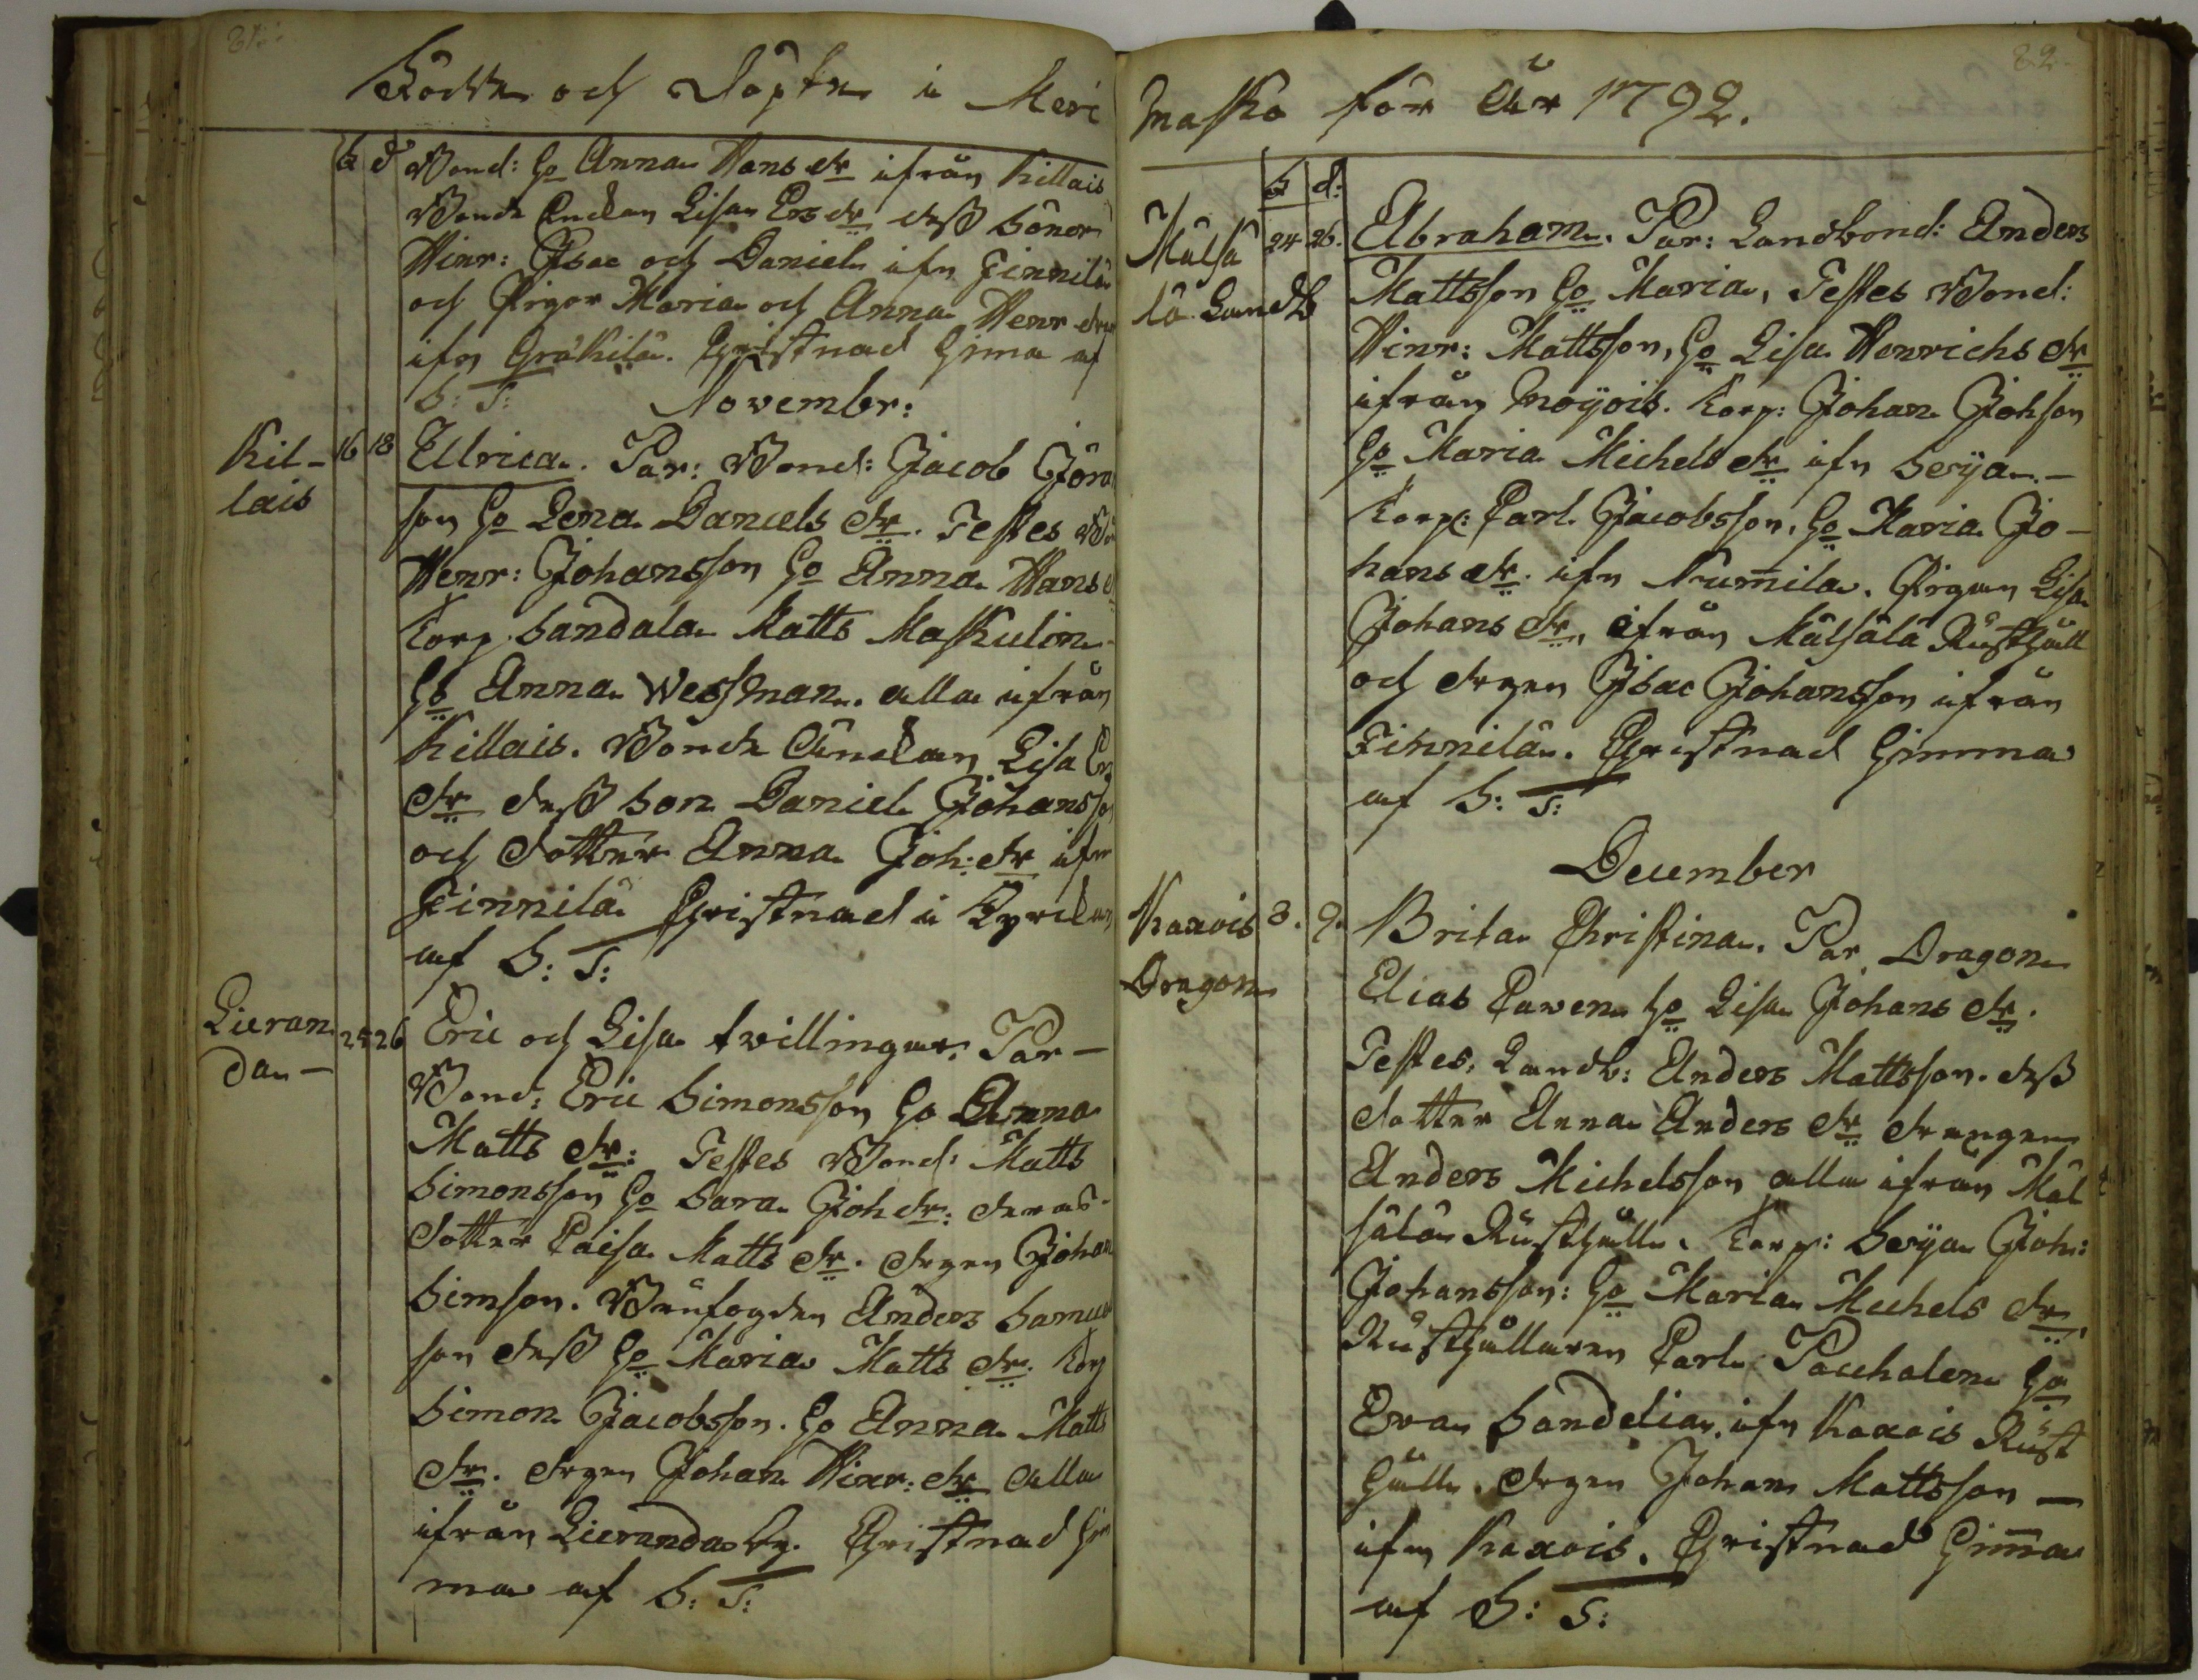 81
Födde och Döpte i Meri
b d Bond: Ho Anna Hans dr ifrån Killais
Bonde Enckan Lisa Ers dr dess Söner
Hinr: Isac och Daniel ifn Finnilä
och Pigor Maria och Anna Henr drr
ifn Gräkilä. Christnad hema af
S: T: Novembr:
Kil- 16 18 Ullrica. Par: Bond: Jacob Göra
lais
son Ho Lena Daniels dr. Testes Bo
Henr: Johansson Ho Anna Hans d
Korp. Sandala Matts Maskulin
Ho Anna Wessman. alla ifrån
Killais. Bonde Änckan Lisa Ers
dr dess Son Daniel Johansso
och dotter Anna Joh: dr ifn
Finnilä Christnad i Kyrckan
af S: T:
Lieran 25 26 Eric och Lisa tvillingar. Par-
da-
Bond: Eric Simonsson Ho Anna
Matts dr: Testes Bond: Matts
Simonsson Ho Sara Joh dr: deras
dotter Caisa Matts dr. drgen Johan
Simson. Anders Samuel
son dess Ho Maria Matts dr. Korp
Simon Jacobsson. Ho Anna Matts
dr. drgen Johan Hinr: dr alla
ifrån Lieranda by. Christnad he
ma af S: T:
82
masko för År 1792.
b d:
Mälsä 24 26. Abraham. Par: Landbond: Anders
lä Landb
Mattsson Ho Maria, Testes Bond:
Hinr: Mattsson, Ho Lisa Henrichs dr
ifrån Moijois. Korp: Johan Johson
Ho Maria Michels dr ifn Seija.-
Korp: Carl Jacobsson, Ho Maria Jo-
hans dr. ifn Nummila. Pigan Lisa
Johans dr, ifrån Mälsälä Rusthåll
och drgen Isac Johansson ifrån
Finnilä. Christnad hemma
af S: T:
December
Kaxois 8. 9. Brita Christina. Par Dragon
Dragon
Elias Paven Ho Lisa Johans dr.
Testes, Landb: Anders Mattsson. dess
dotter Anna Anders dr drengen
Anders Michelsson alla ifrån Mäl
sälä Rusthåll. Korp: Seija Joh:
Johansson: Ho Maria Michels dr,
Rusthållaren Carl Paccalen Ho
Eva Sandelia. ifn Kaxois Rust
håll. drgen Johan Mattsson -
ifn Kaxois. Christnad hemma
af S: T: